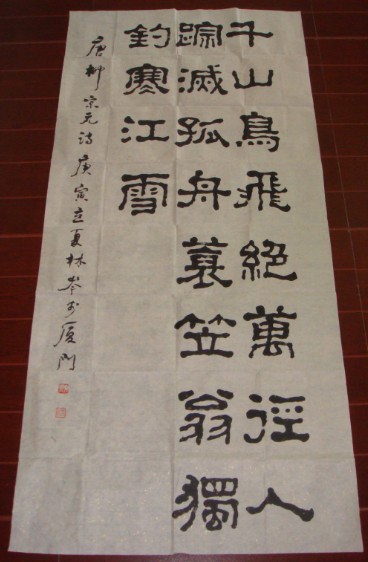 千山鳥飛絕萬徑人
踪滅孤舟蓑笠翁獨
釣寒江雪
唐柳宗元詩庚寅立夏林岑於厦門